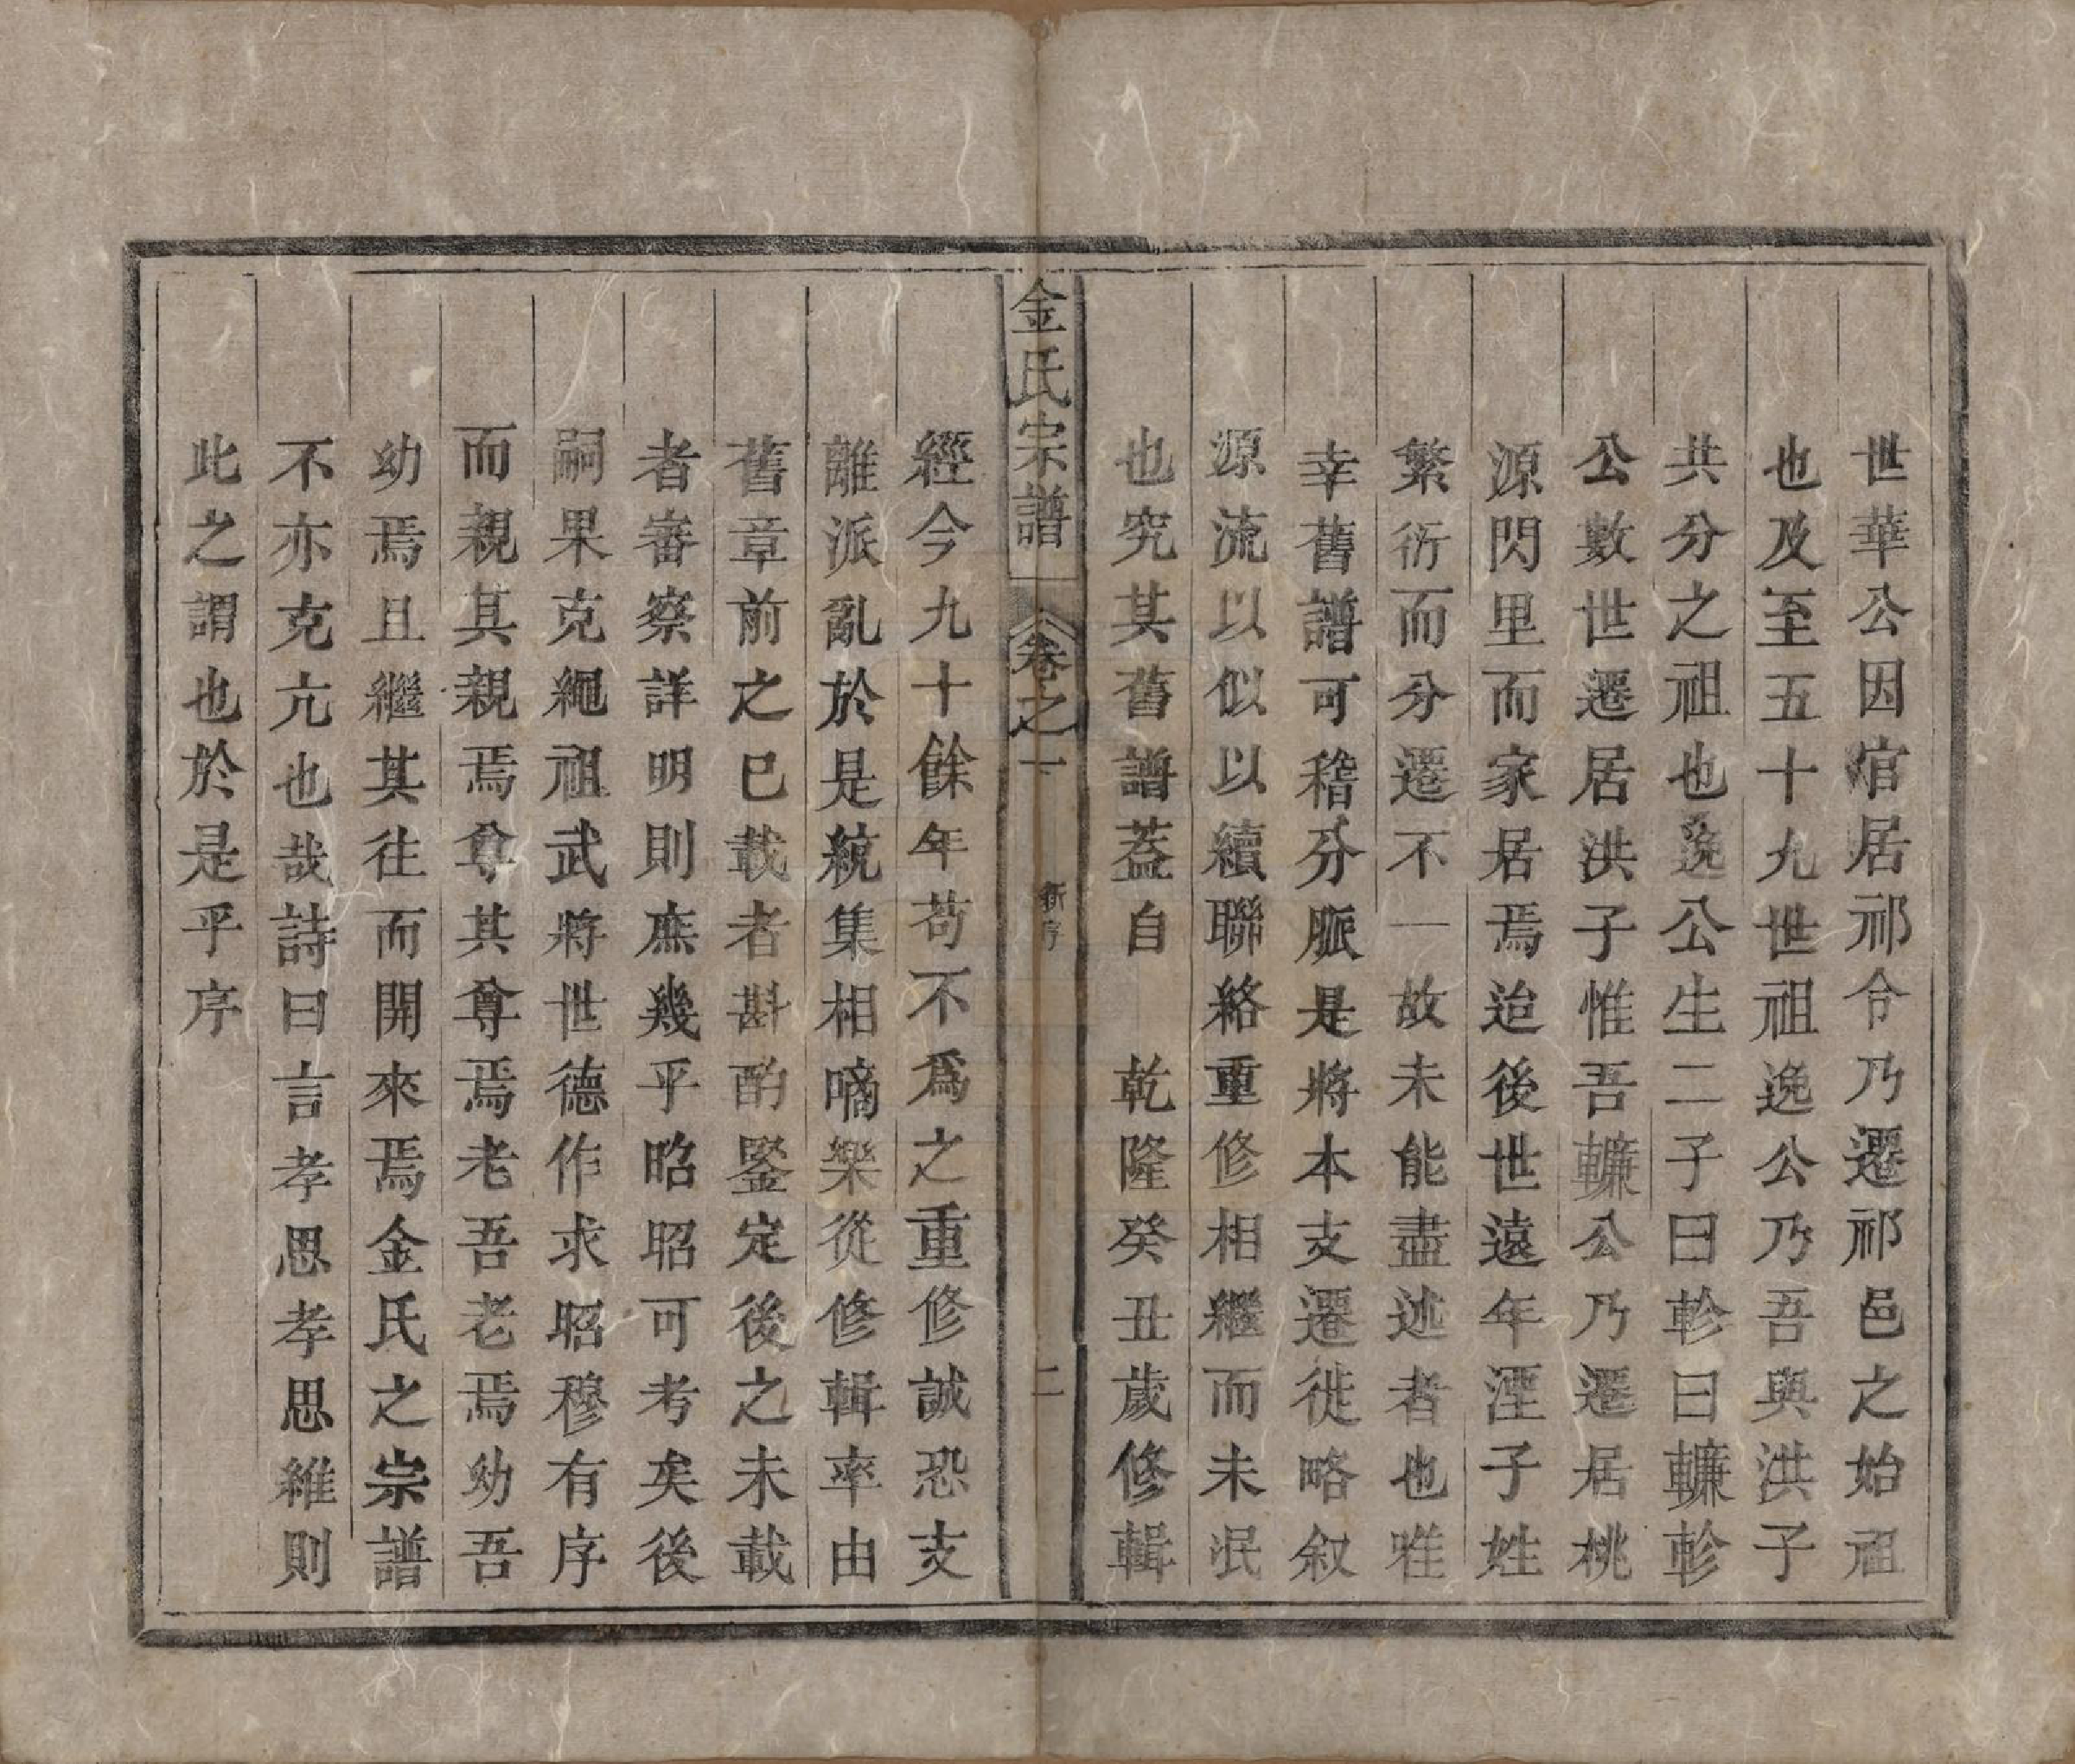 世華公因官居祁令乃遷祁邑之始祖
也及至五十九世祖逸公乃吾與洪子
共分之祖也逸公生二子曰軫曰轤軫
公數世遷居洪子惟吾轤公乃遷居桃
源閃里而家居焉迨後世遠年湮子姓
繁衍而分遷不一故未能盡述者也唯
幸舊譜可稽分脈是將本支遷徙略叙
源流以似以續聯絡重修相繼而未泯
也究其舊譜葢自　乾隆癸丑歲修輯
金氏宗譜　卷之一　新序　二
經今九十餘年苟不爲之重修誠恐支
離派亂於是統集相嘀樂從修輯率由
舊章前之已載者斟酌鑒定後之未載
者審察詳明則庶幾乎昭昭可考矣後
嗣果克繩祖武將世德作求昭穆有序
而親其親焉尊其尊焉老吾老焉幼吾
幼焉且繼其往而開來焉金氏之宗譜
不亦克亢也哉詩曰言孝思孝思維則
此之謂也於是乎序